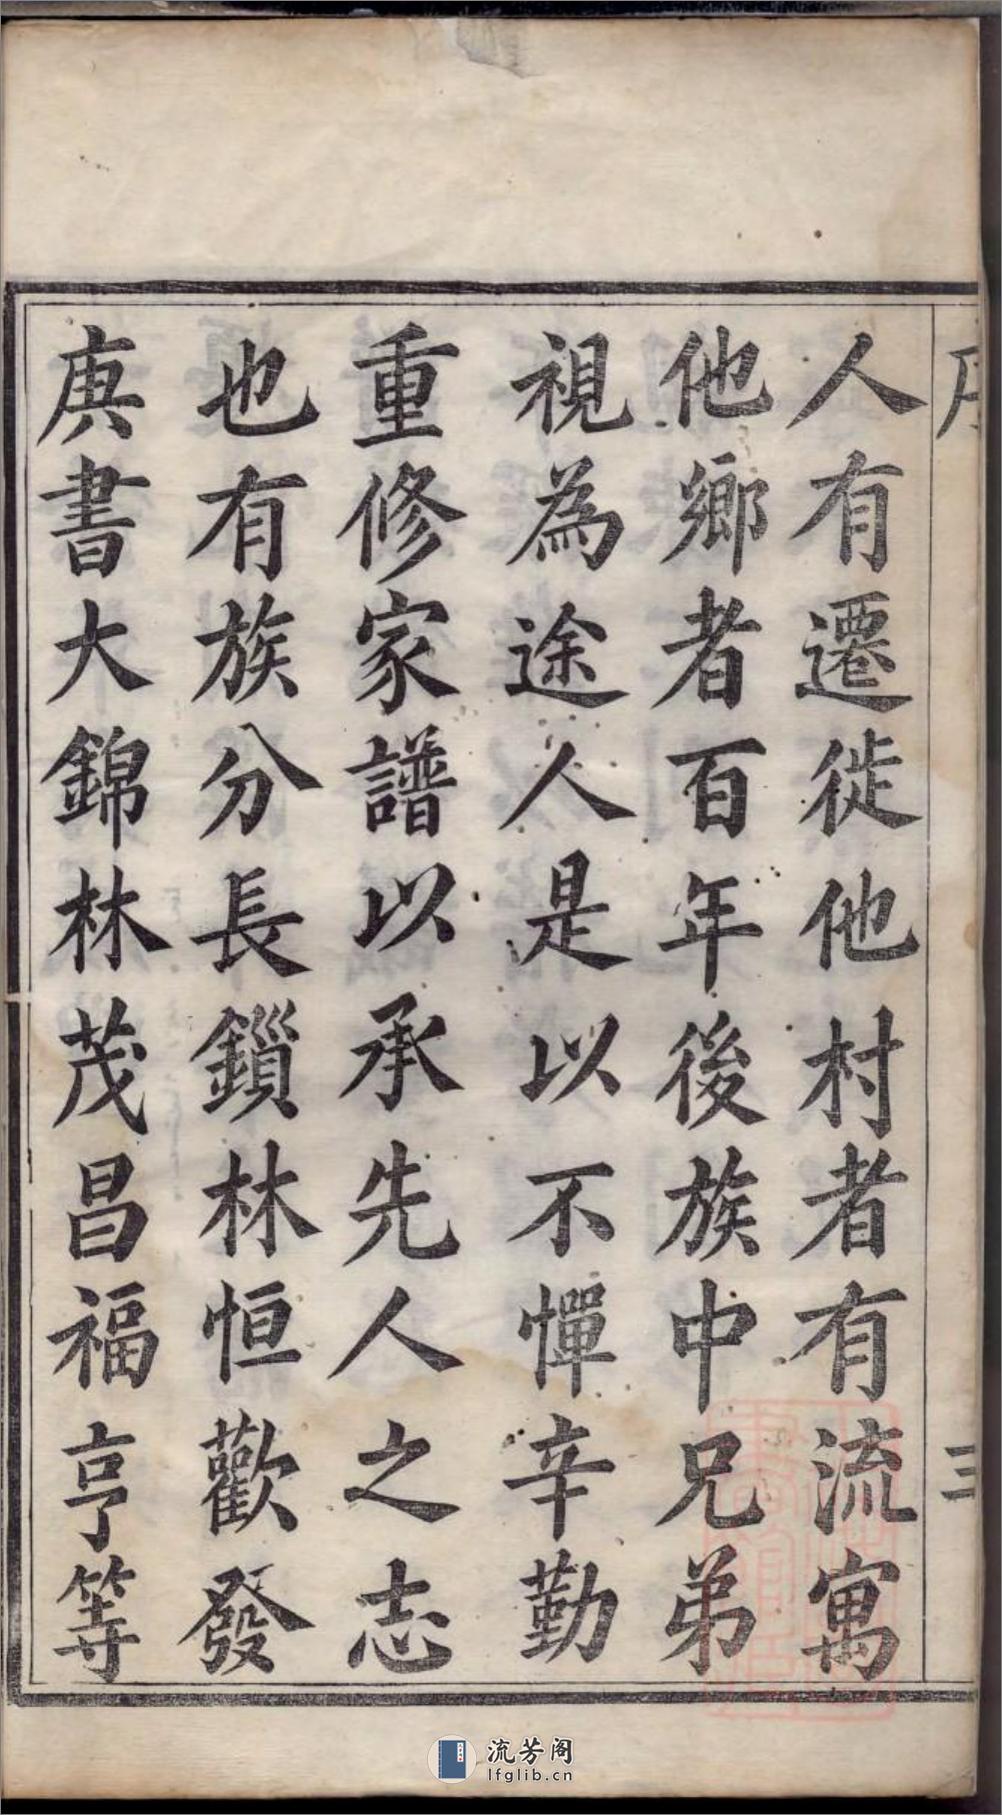 人有遷徙他村者有流寓
他鄉者百年後族中兄弟
視為途人是以不憚辛勤
重修家譜以承先人之志
也有族分長鎻林恒歡發
庚書大錦林茂昌福亨等
三
流芳阁
lfglib.cn